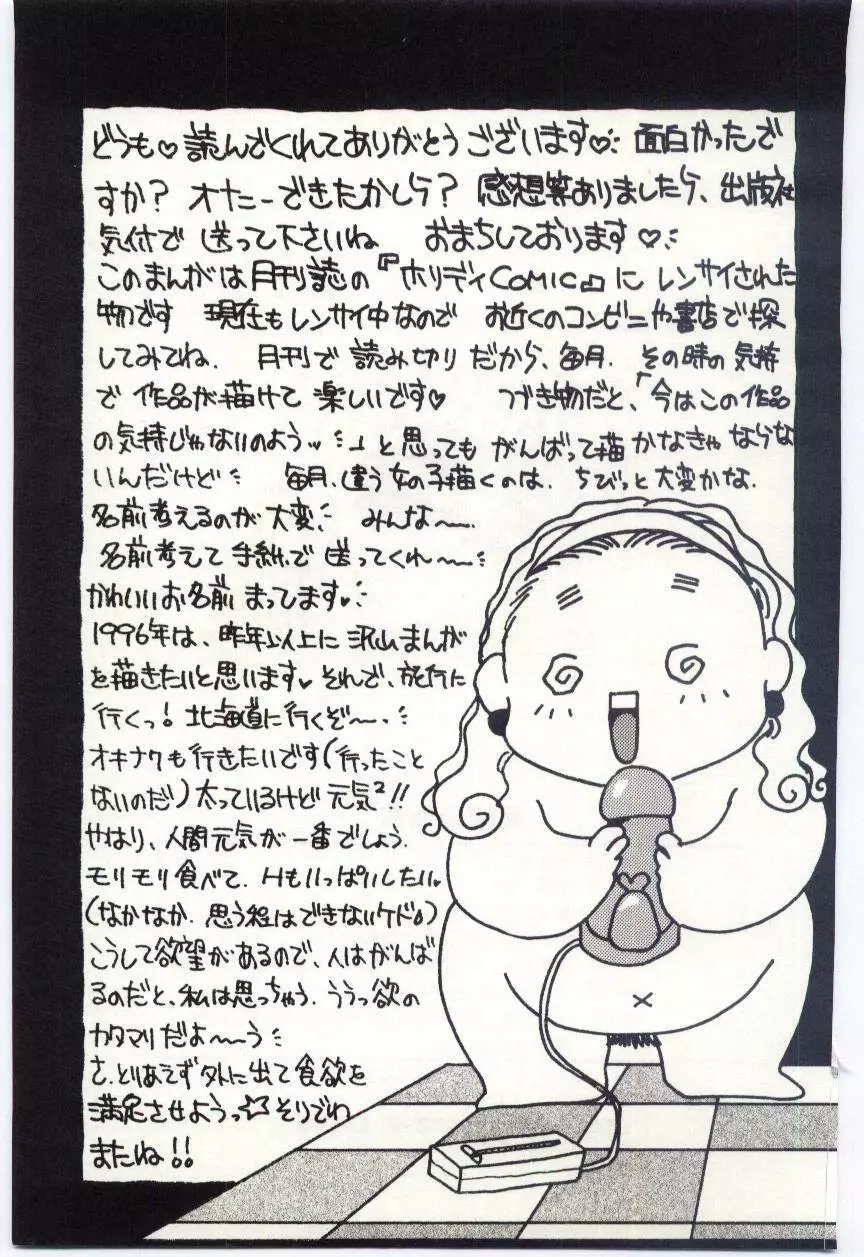 どうも♡読んでくれてありがとうございます♡ 面白かったで
すか？ オナニーできたかしら？ 感想等ありましたら、出版社
気付で 送って下さいね おまちしております♡
このまんがは月刊誌の『ホリディCOMIC』に レンサイされた
物です 現在もレンサイ中なので お近くのコンビニや書店で探
してみてね. 月刊で 読み切りだから、毎月. その時の気持
で 作品が描けて 楽しいです♡ つづき物だと、「今はこの作品
の気持じゃないのよう」と思っても がんばって描かなきゃならな
いんだけど 毎月、違う女の子描くのは. ちびっと大変かな.
名前考えるのが大変. みんな〜
名前考えて 手紙で 送ってくれ〜
かわいいお名前 まってます♡
1996年は、昨年以上に沢山まんが
を描きたいと思います♡ それで、旅行に
行くっ！北海道に行くぞ〜
オキナワも行きたいです（行ったこと
ないのだ）太っているけど 元気²!!
やはり、人間元気が一番でしょう.
モリモリ食べて、Hもいっぱいしたい♡
（なかなか. 思う程はできないケド）
こうして欲望があるので、人はがんば
るのだと、私は思っちゃう. ううっ欲の
カタマリだよ〜〜う
さ、とりあえず外に出て食欲を
満足させようっ☆ そりでわ
またね!!